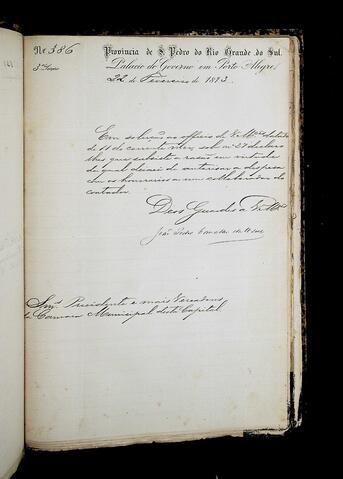 Nº 386
Provincia de S. Pedro do Rio Grande do Sul.
3ª Secção
Palacio do Governo em Porto Alegre,
22 de Fevereiro de 1873.
Em solução ao officio de Vmcês datado
de 11 do corrente mez, sob nº 27 declaro
lhes que subsiste a razão em virtude
da qual deixei de autorisar a despeza
com os honorarios a um collaborador do
contador.
Deos Guarde a Vmcês
João
Snrs. Presidente e mais Vereadores
da Camara Municipal desta Capital.